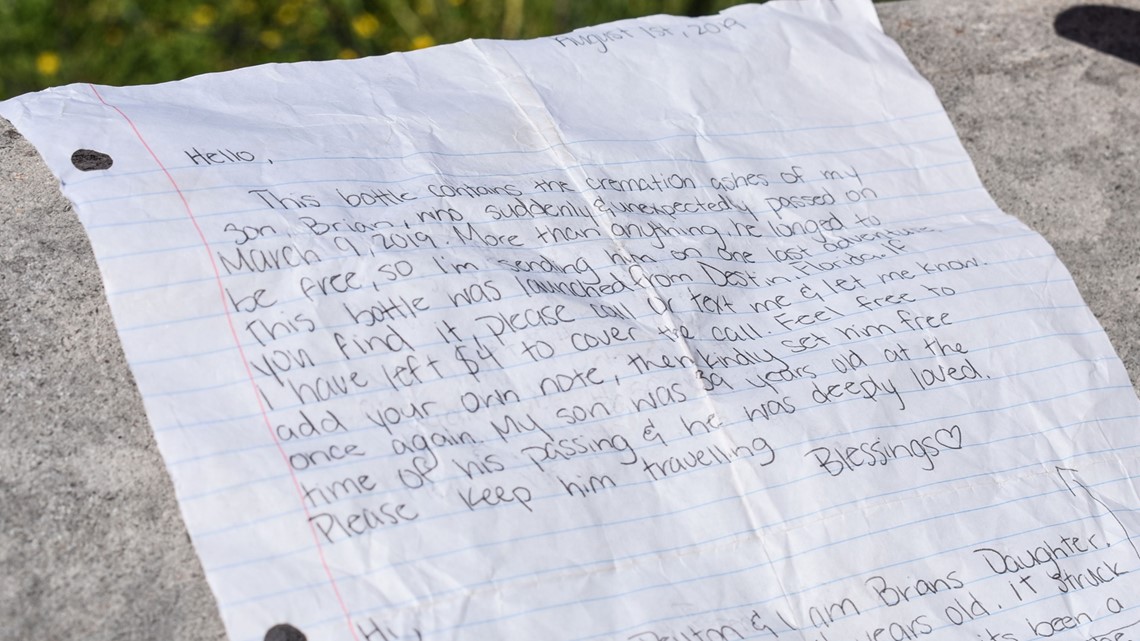 August 1st, 2019
Hello,
This bottle contains the cremation ashes of my
son Brian, who suddenly & unexpectedly passed on
March 9, 2019. More than anything, he longed to
be free, so I'm sending him on one last adventure.
This bottle was launched from Destin Florida. if
you find it please call or text me & let me know.
I have left $4 to cover the call. Feel free to
add your own note, then kindly set him free
once again. My son was 39 years old at the
time of his passing & he was deeply loved.
Please keep him travelling Blessings♡
Hi,
& I am Brians Daughter.
years old. it struck
its been a